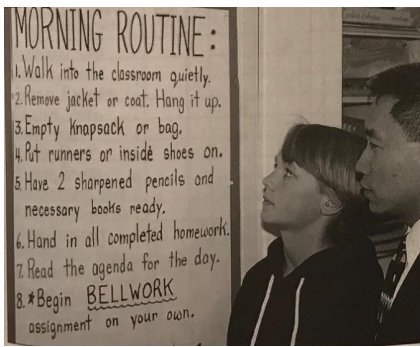 MORNING ROUTINE:
1. Walk into the classroom quietly.
2. Remove jacket or coat. Hang it up.
3. Empty knapsack or bag.
4. Put runners or inside shoes on.
5. Have 2 sharpened pencils and
necessary books ready.
6. Hand in all completed homework.
7. Read the agenda for the day.
8. *Begin BELLWORK
assignment on your own.